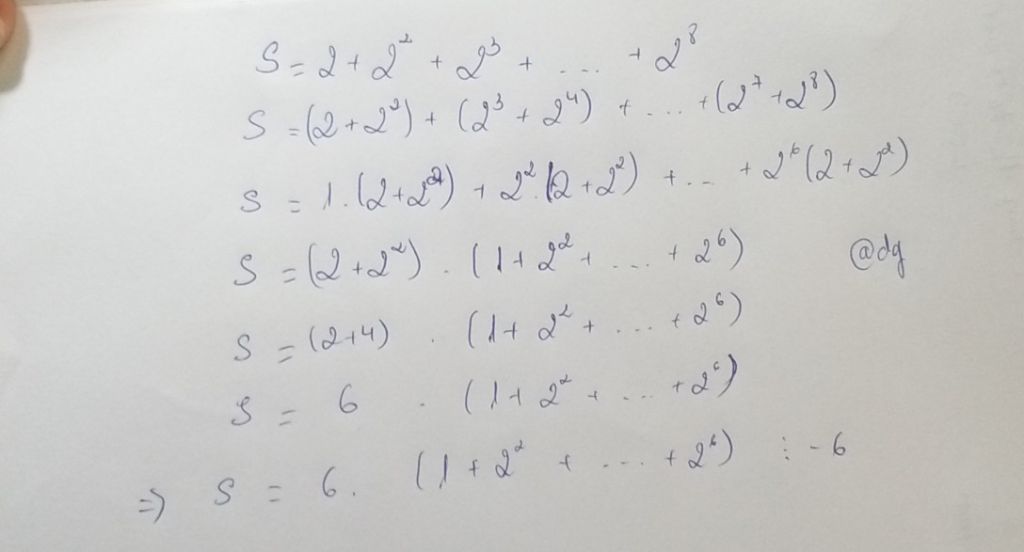 S = 2 + 2² + 2³ + .... + 2⁸
S = (2 + 2²) + (2³ + 2⁴) + .... + (2⁷ + 2⁸)
S = 1.(2 + 2²) + 2².(2 + 2²) + ... + 2⁶(2 + 2²)
S = (2 + 2²) . (1 + 2² + .... + 2⁶)
@dg
S = (2+4) . (1 + 2² + .... + 2⁶)
S = 6 . (1 + 2² + .... + 2⁶)
=> S = 6. (1 + 2² + .... + 2⁶) ⋮ -6